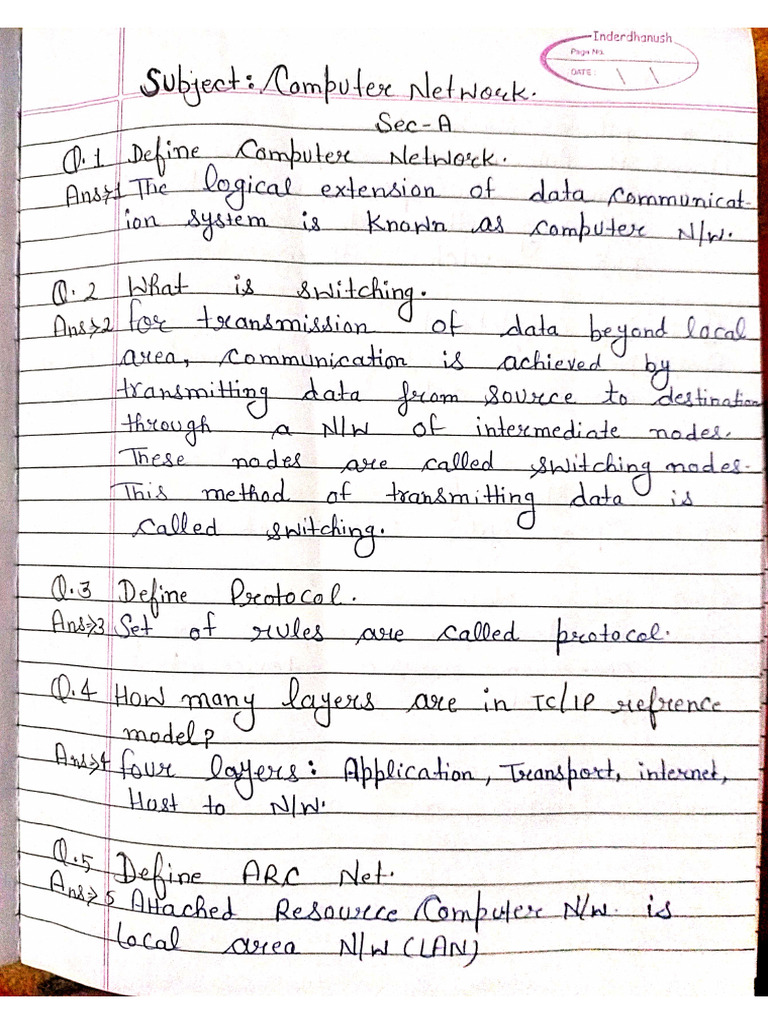 Inderdhanush
Page No.
DATE: \ \
Subject: Computer Network.
Sec-A
Q.1 Define Computer Network.
Ans⇒1 The logical extension of data communicat-
ion system is known as computer N/W.
Q.2 What is switching.
Ans⇒2 for transmission of data beyond local
area, communication is achieved by
transmitting data from source to destination
through a N/W of intermediate nodes.
These nodes are called switching nodes.
This method of transmitting data is
called switching.
Q.3 Define Protocol.
Ans⇒3 Set of rules are called protocol.
Q.4 How many layers are in TC/IP refrence
model?
Ans⇒4 four layers: Application, Transport, internet,
Host to N/W.
Q.5 Define ARC Net.
Ans⇒5 Attached Resource Computer N/W. is
local area N/W (LAN)